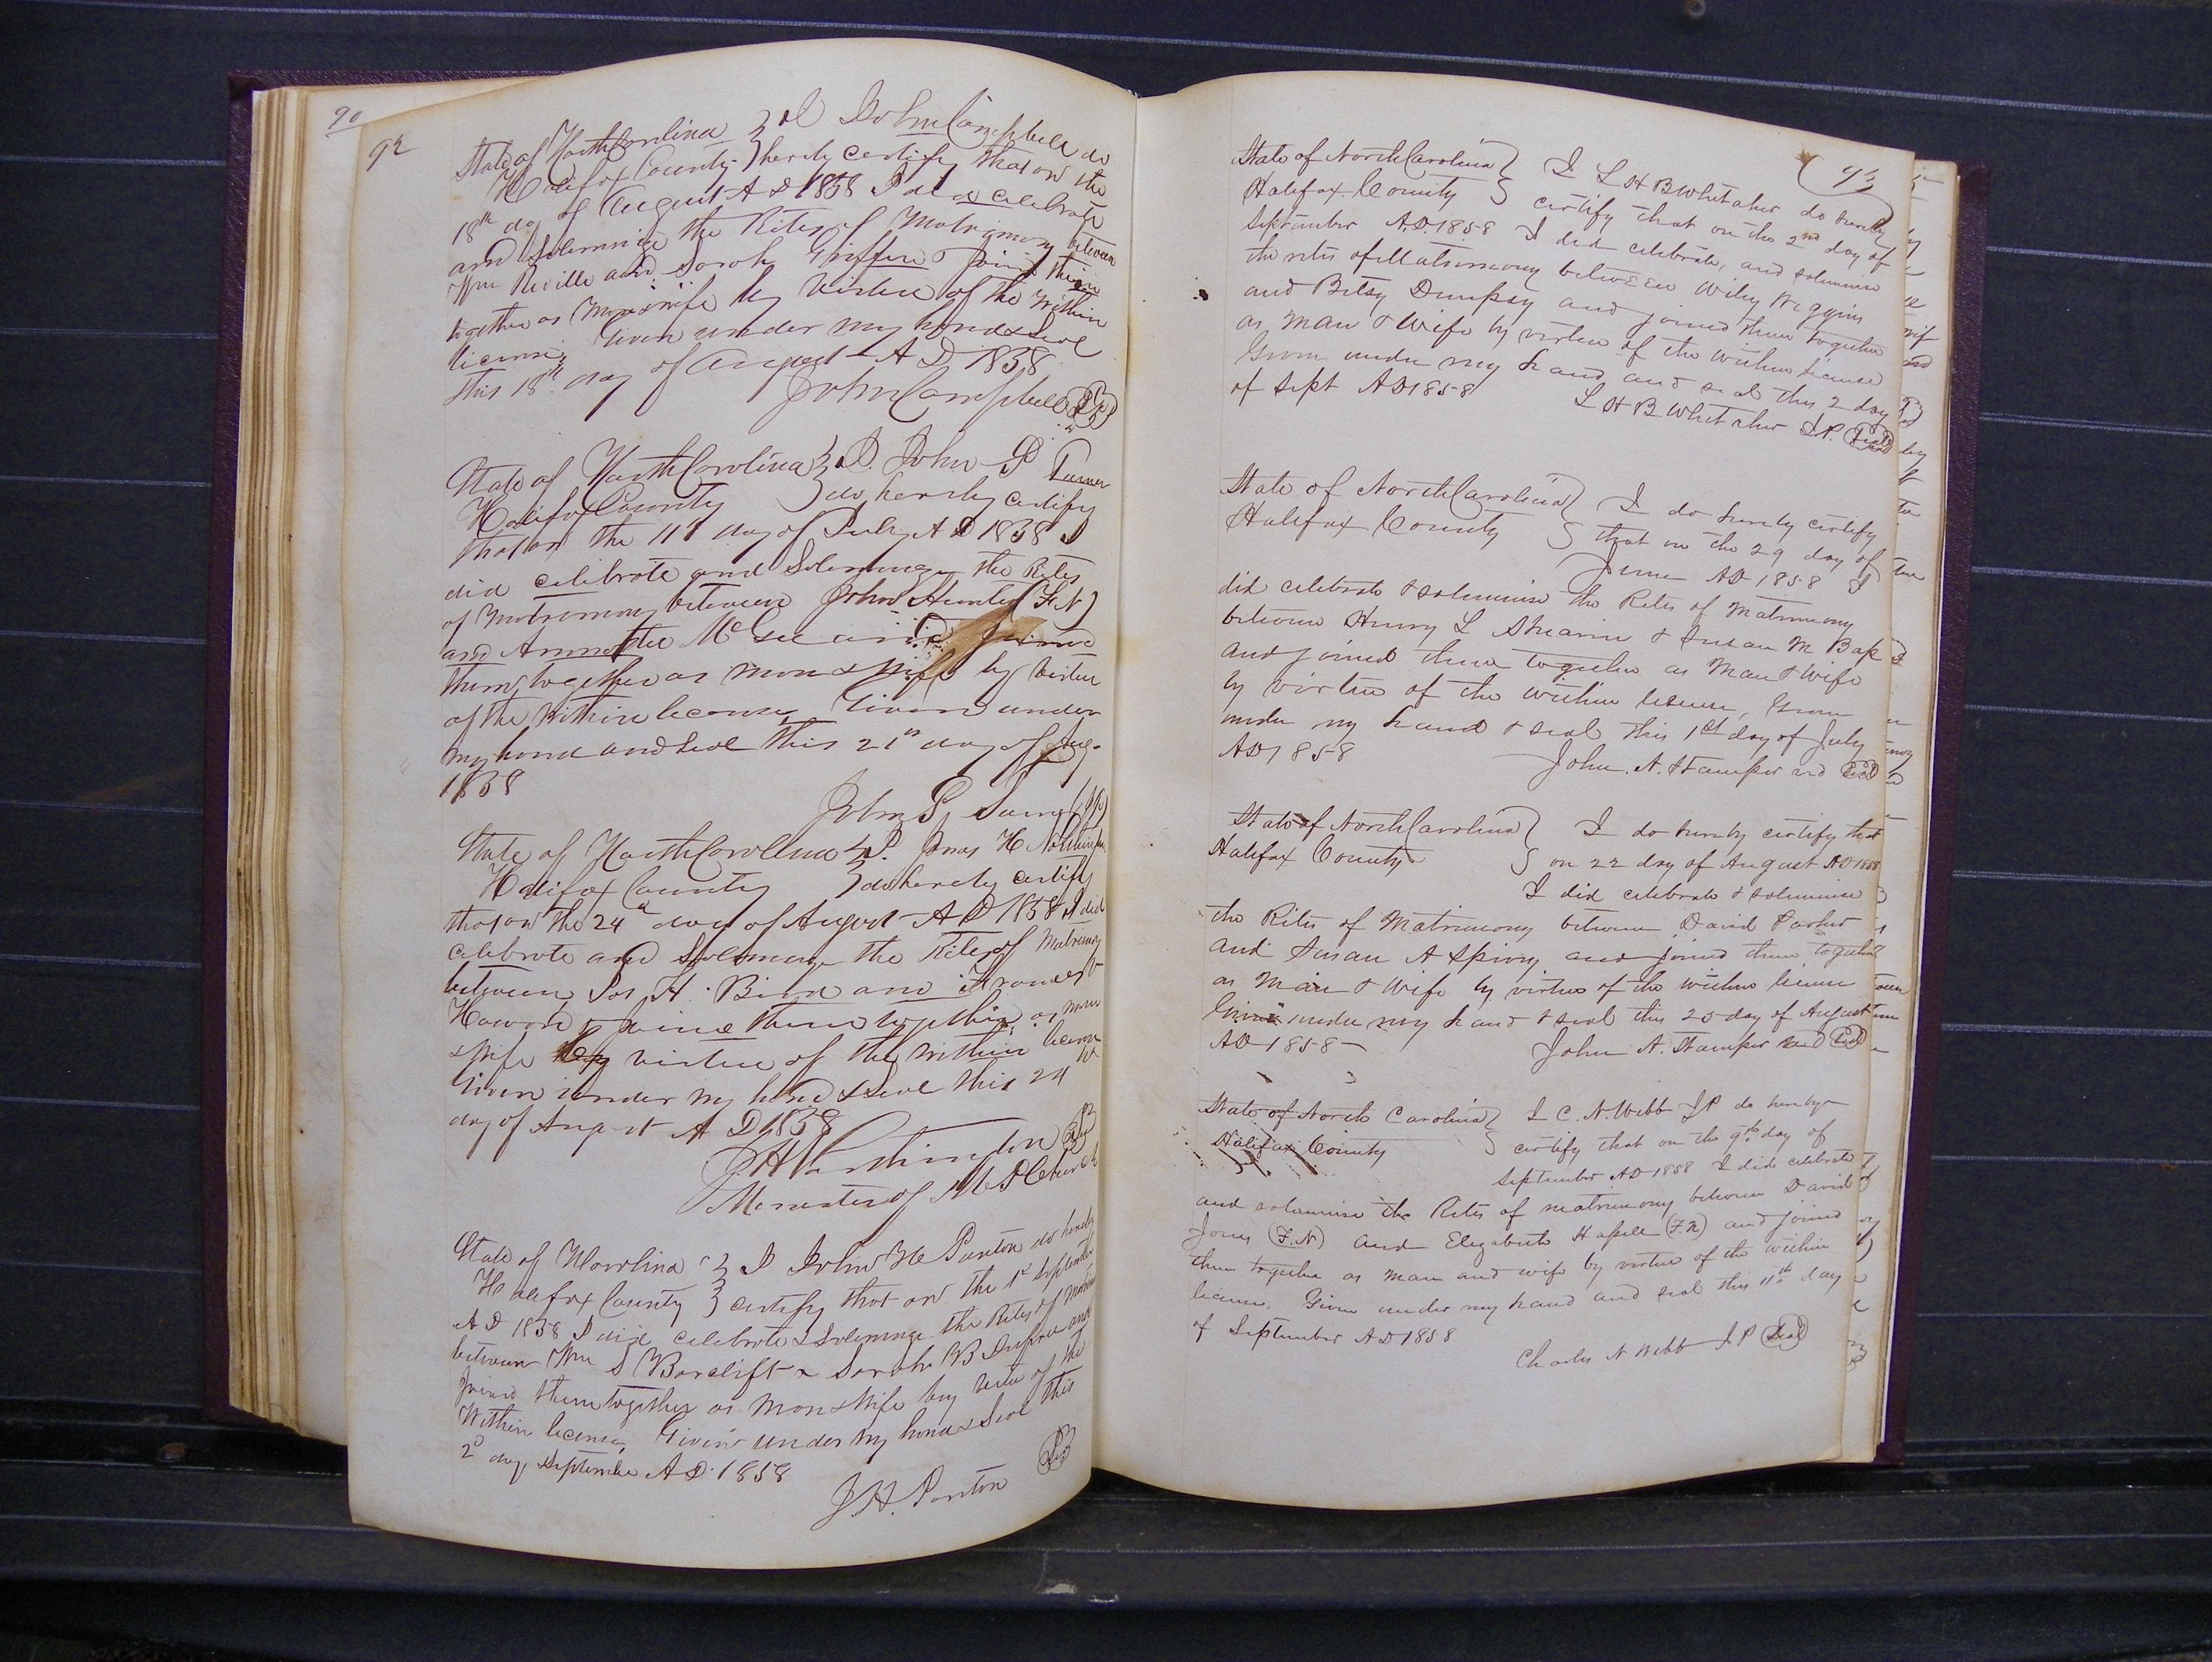 90
92
State of North Carolina } I John Campbell do
Halifax County } hereby certify that on the
18th day of August A D 1858 I did celebrate
and solemnize the Rites of Matrimony between
Wm Neville and Sarah Griffin & Joined them
together as Man & wife by Virtue of the Within
license, Given under my hand & Seal
this 18th day of August A D 1858
John Campbell
State of North Carolina } I. John S Turner
Halifax County } do hereby certify
that on the 11th day of July A D 1858 I
did celibrate and Solemnize the Rites
of Matrimony between John Hunter (F N)
and Annette McGee and Joined
them together as man & Wife by Virtue
of the Within license, Given under
my hand and Seal this 21st day of Aug.
1858
John S. Turner (JP)
State of North Carolina } I. Jones H
Halifax County } do hereby certify
that on the 24th day of August A D 1858 I did
celebrate and Solemnize the Rites of Matrimony
between Jos. H. Bird and Frances
Howard & Joined them together as man
& Wife by virtue of the within license
Given under my hand & Seal this 24th
day of August A D 1858
Minister of M P Church
State of N Carolina } I John H Ponton do hereby
Halifax County } certify that on the 1st September
A D 1858 I did celebrate & Solemnize the Rites of
between Wm S Barclift & Sarah B and
Joined them together as Man & Wife by virtue of the
Within license, Given under my hand & Seal this
2d day September A D. 1858
J. H. Ponton
93
State of North Carolina } I L H B Whitaker do hereby
Halifax County } certify that on the 2nd day of
September A.D. 1858 I did celebrate, and solemnise
the rites of Matrimony between Wiley Wiggins
and Betsy Dempsy and joined them together
as Man & Wife by virtue of the within license
Given under my hand and seal this 2 day
of Sept AD 1858
L H B Whitaker J.P. (Seal)
State of North Carolina } I do hereby certify
Halifax County } that on the 29 day of
June AD 1858 I
did celebrate & solemnise the Rites of Matrimony
between Henry L Shearin & Susan M
and joined them together as Man & Wife
by virtue of the within license, Given
under my hand & seal this 1st day of July
AD 1858
John. N. Stamper (Seal)
State of North Carolina } I do hereby certify that
Halifax County } on 22 day of August AD 1858
I did celebrate & solemnise
the Rites of Matrimony between David Parker
and Susan A Spivey and joined them together
as Man & Wife by virtue of the within license
Given under my hand & seal this 25 day of August
AD 1858
John N. Stamper (Seal)
State of North Carolina } I C. N. Webb JP do hereby
Halifax County } certify that on the 9th day of
September AD 1858 I did celebrate
and solemnise the Rites of matrimony between David
Jones (F. N) and Elizabeth (F. N) and joined
them together as man and wife by virtue of the within
license. Given under my hand and seal this 11th day
of September AD 1858
Charles N Webb J P (Seal)